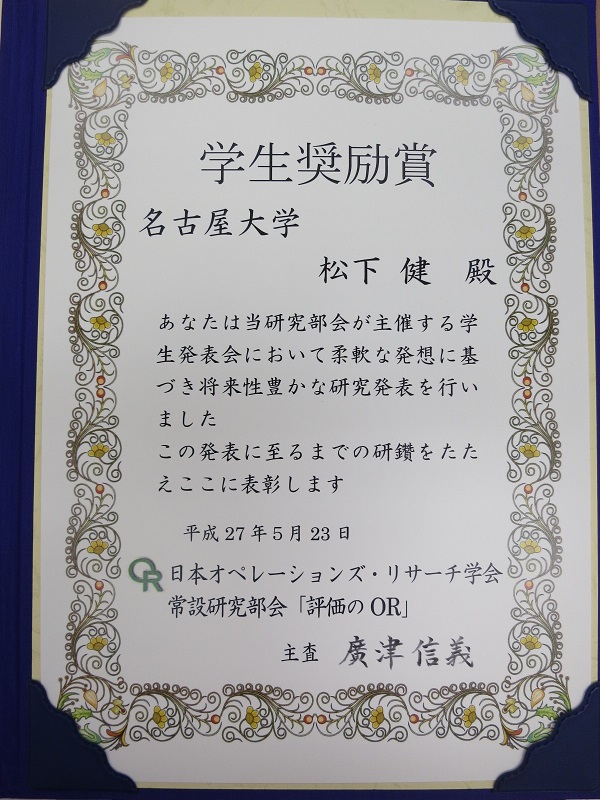 学生奨励賞
名古屋大学
松下 健 殿
あなたは当研究部会が主催する学
生発表会において柔軟な発想に基
づき将来性豊かな研究発表を行い
ました
この発表に至るまでの研鑽をたた
えここに表彰します
平成27年5月23日
OR 日本オペレーションズ・リサーチ学会
常設研究部会「評価のOR」
主査 廣津信義